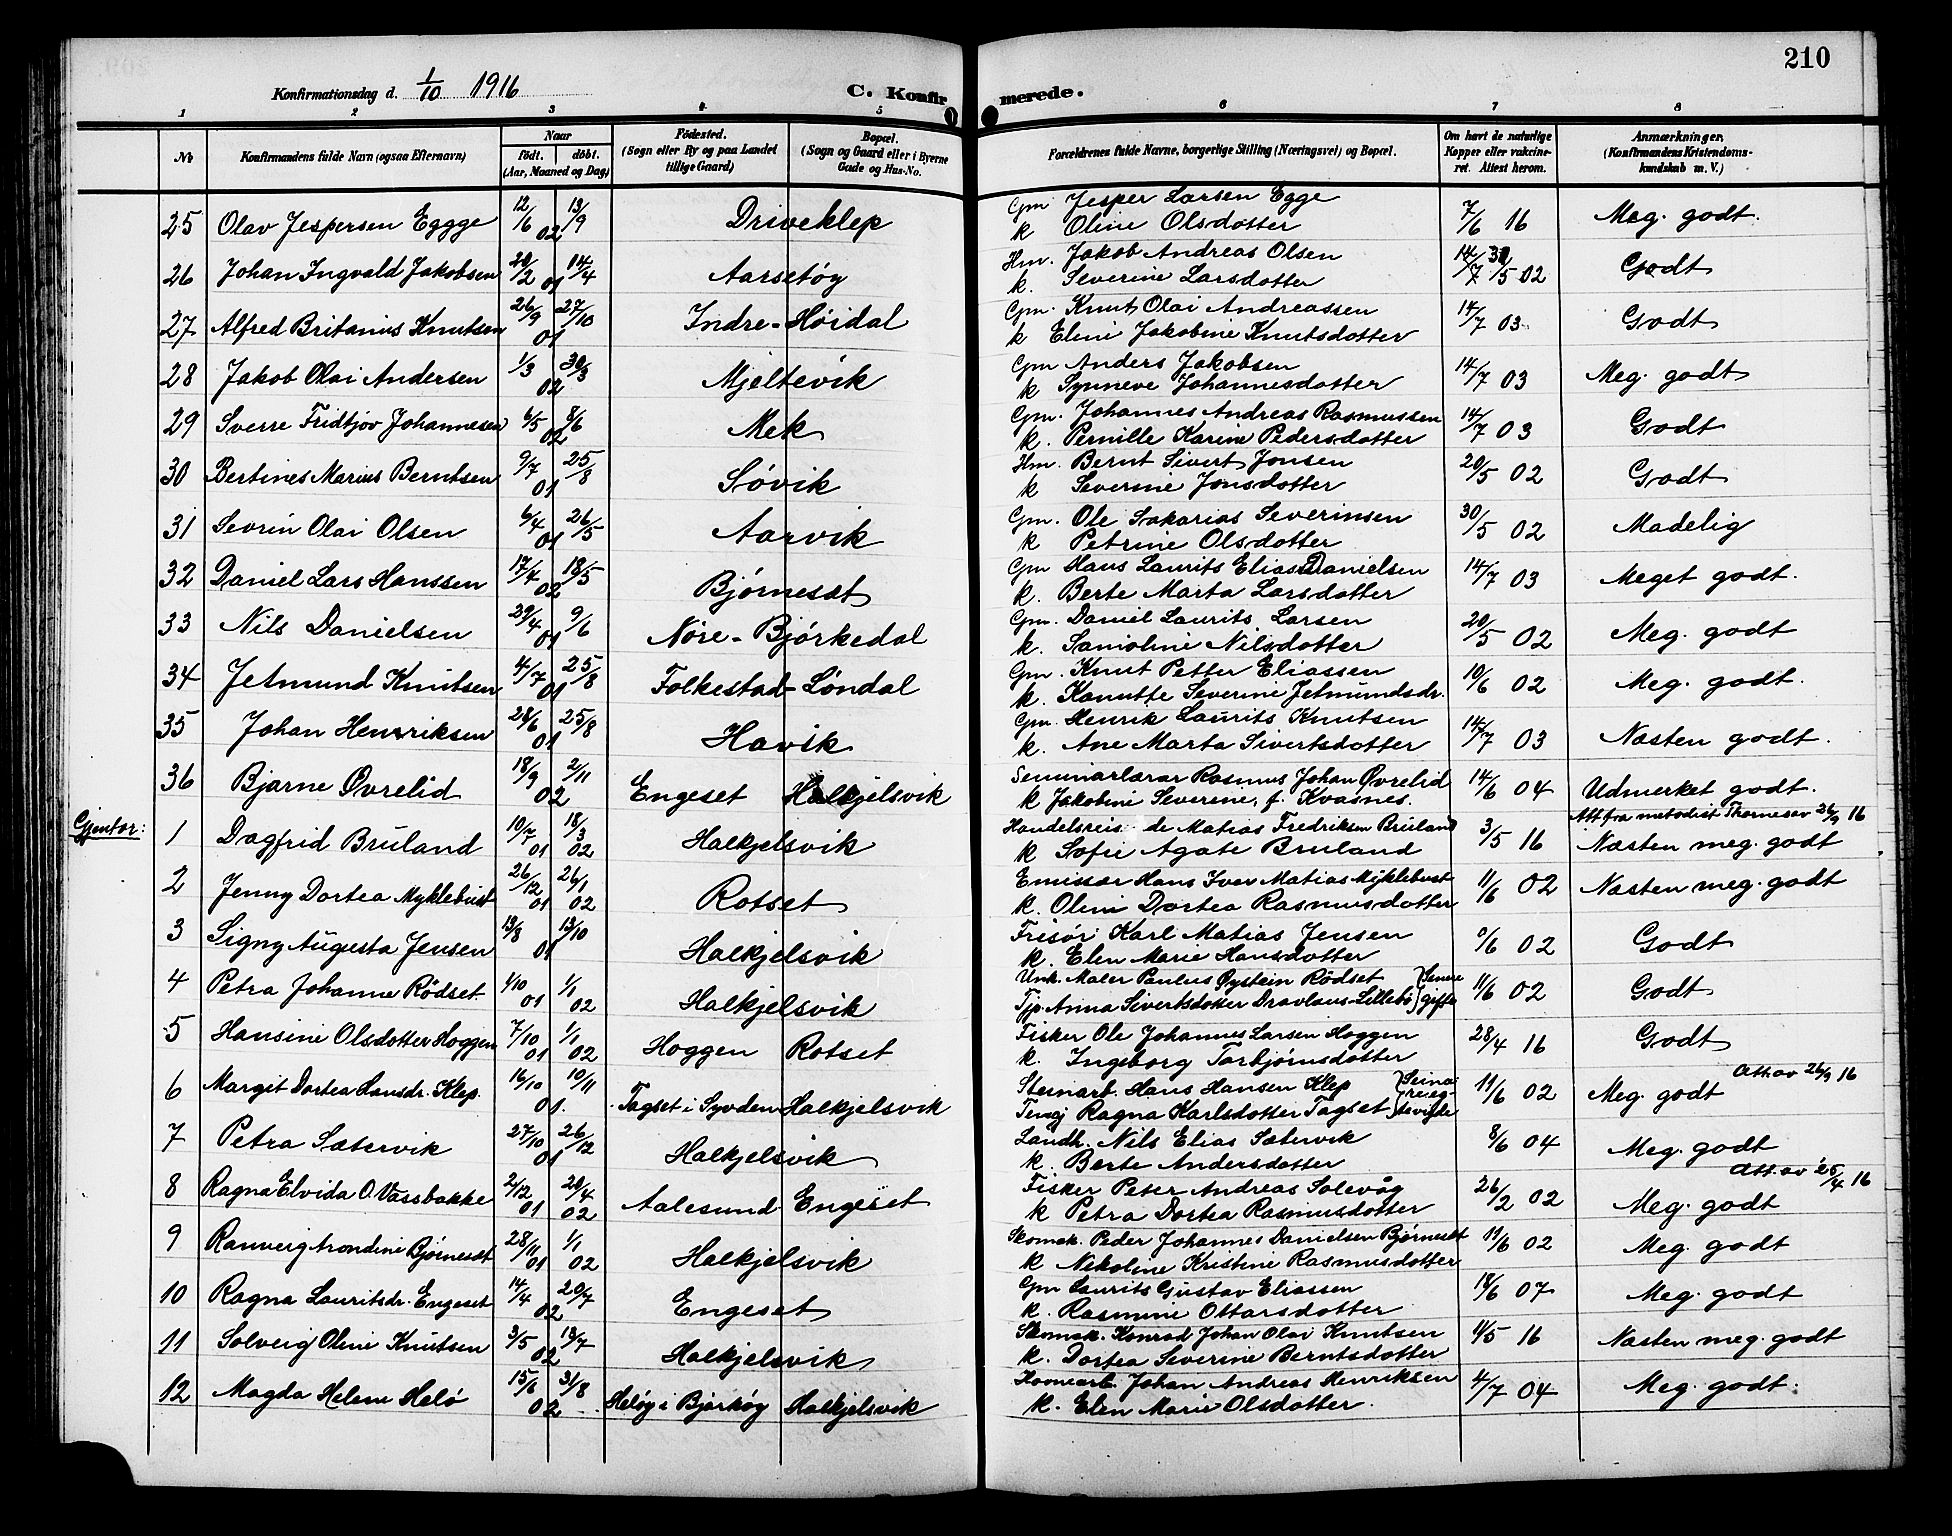 210
Konfirmationsdag d. 1/10 1916
C. Konfirmerede.
1 2 3 4 5 6 7 8
No
Konfirmandens fulde Navn (ogsaa Efternavn)
Naar
født. døbt.
(Aar, Maaned og Dag)
Fødested.
(Sogn eller By og paa Landet
tillige Gaard)
Bopæl.
(Sogn og Gaard eller i Byerne
Gade og Hus-No.
Forældrenes fulde Navne, borgerlige Stilling (Næringsvei) og Bopæl.
Om havt de naturlige
Kopper eller vakcineret. Attest herom.
Anmærkninger.
(Konfirmandens Kristendomskundskab m. V.)
25 Olav Jespersen Eggge 12/6 02 13/9 Driveklep Gm Jesper Larsen Egge 7/6 16 Meg. godt.
k Oline Olsdotter
26 Johan Ingvald Jakobsen 20/2 01 14/4 Aarsetøy Hm. Jakob Andreas Olsen 14/7 /5 02 Godt
k. Severine Larsdotter
27 Alfred Britanius Knutsen 26/9 01 27/10 Indre-Høidal Gm. Knut Olai Andreassen 14/7 03 Godt
k Elini Jakobine Knutsdotter
28 Jakob Olai Andersen 1/3 02 30/3 Mjeltevik Gm Anders Jakobsen 14/7 03 Meg. godt
k Synneve Johannesdotter
29 Sverre Fridtjov Johannesen 6/5 02 8/6 Mek Gm. Johannes Andreas Rasmussen 14/7 03 Godt
k. Pernille Karine Pedersdotter
30 Bertines Marius Berntsen 9/7 01 25/8 Søvik Hm. Bernt Sivert Jonsen 20/5 02 Godt
k Severine Jonsdotter
31 Sevrin Olai Olsen 6/4 01 26/5 Aarvik Gm. Ole Sakarias Severinsen 30/5 02 Madelig
k Petrine Olsdotter
32 Daniel Lars Hanssen 17/4 02 18/5 Bjørneset Gm Hans Laurits Elias Danielsen 14/7 03 Meget godt.
k. Berte Marta Larsdotter
33 Nils Danielsen 29/4 01 9/6 Nøre-Bjørkedal Gm. Daniel Laurits Larsen 20/5 02 Meg. godt
k. Samoline Nilsdotter
34 Jetmund Knutsen 4/7 01 25/8 Folkestad-Løndal Gm. Knut Petter Eliassen 10/6 02 Meg. godt.
k. Kanutte Severine Jetmundsdr.
35 Johan Henrriksen 28/6 01 25/8 Havik Gm. Henrik Laurits Knutsen 14/7 03 Næsten godt.
k. Ane Marta Sivertsdotter
36 Bjarne Øvrelid 18/9 02 2/11 Engeset Halkjelsvik Seminarlærar Rasmus Johan Øvrelid 14/6 04 Udmerket godt.
k Jakobine Severine, f. Kvasnes.
Gjentor:
1 Dagfrid Bruland 10/7 01 18/3 02 Halkjelsvik Handelsreis de Matias Fredriksen Bruland 3/5 16 Att fra metodist Thornesev 26/9 16
k Sofie Agate Bruland Næsten meg. godt
2 Jenny Dortea Myklebust 26/12 01 26/1 02 Rotset Emissær Hans Iver Matias Myklebust 11/6 02 Næsten meg. godt
k. Olini Dortea Rasmusdotter
3 Signy Augusta Jensen 13/8 01 13/10 Halkjelsvik Frisør Karl Matias Jensen /6 02 Godt
k. Elen Marie Hansdotter
4 Petra Johanne Rødset 1/10 01 1/1 02 Halkjelsvik Unk. Maler Paulus Øystein Rødset } senere 11/6 02 Godt
Tjp. Anna Sivertsdotter Dravlaus-Lillebø } gifte
5 Hansine Olsdotter Hoggen 7/10 01 1/1 02 Hoggen Rotset Fisker Ole Johannes Larsen Hoggen 28/4 16 Godt
k. Ingeborg Torbjørnsdotter
6 Margit Dortea Hansdr. Klep 16/10 01. 10/11 Tagset i Syvden Halkjelsvik Steinarb. Hans Hansen Klep 11/6 02 Att. av 26/9 16
Tenaj Ragna Karlsdotter Tagset Meg. godt
7 Petra Sætervik 27/10 01 26/12 Halkjelsvik Landh. Nils Elias Sætervik 8/6 04 Meg. godt
k. Berte Andersdotter
8 Ragna Elvida O. Vassbakke 2/12 01 20/4 02 Aalesund Engeset Fisker Peter Andreas Solevåg 26/2 02 Att. av 25/4 16
k Petra Dortea Rasmusdotter Meg. godt
9 Ranveig Arondini Bjørneset 28/11 01 1/1 02 Halkjelsvik Skomak. Peder Johannes Danielsen Bjørneset 11/6 02 Meg. godt
k Nekoline Kristine Rasmusdotter
10 Ragna Lauritsdr. Engeset 14/4 02 20/7 Engeset Gm Laurits Gustav Eliassen 18/6 07 Meg. godt
k. Rasmine Ottarsdotter
11 Solveig Oline Knutsen 3/5 02 13/7 Halkjelsvik Skomak. Konrad Johan Olai Knutsen 4/5 16 Næsten meg. godt
k. Dortea Severine Berntsdotter
12 Magda Helene Helø 15/6 02 31/8 Heløy i Bjarkøy Halkjelsvik Johan Andreas Henriksen 4/7 04 Meg. godt.
k. Elen Marie Olsdotter.